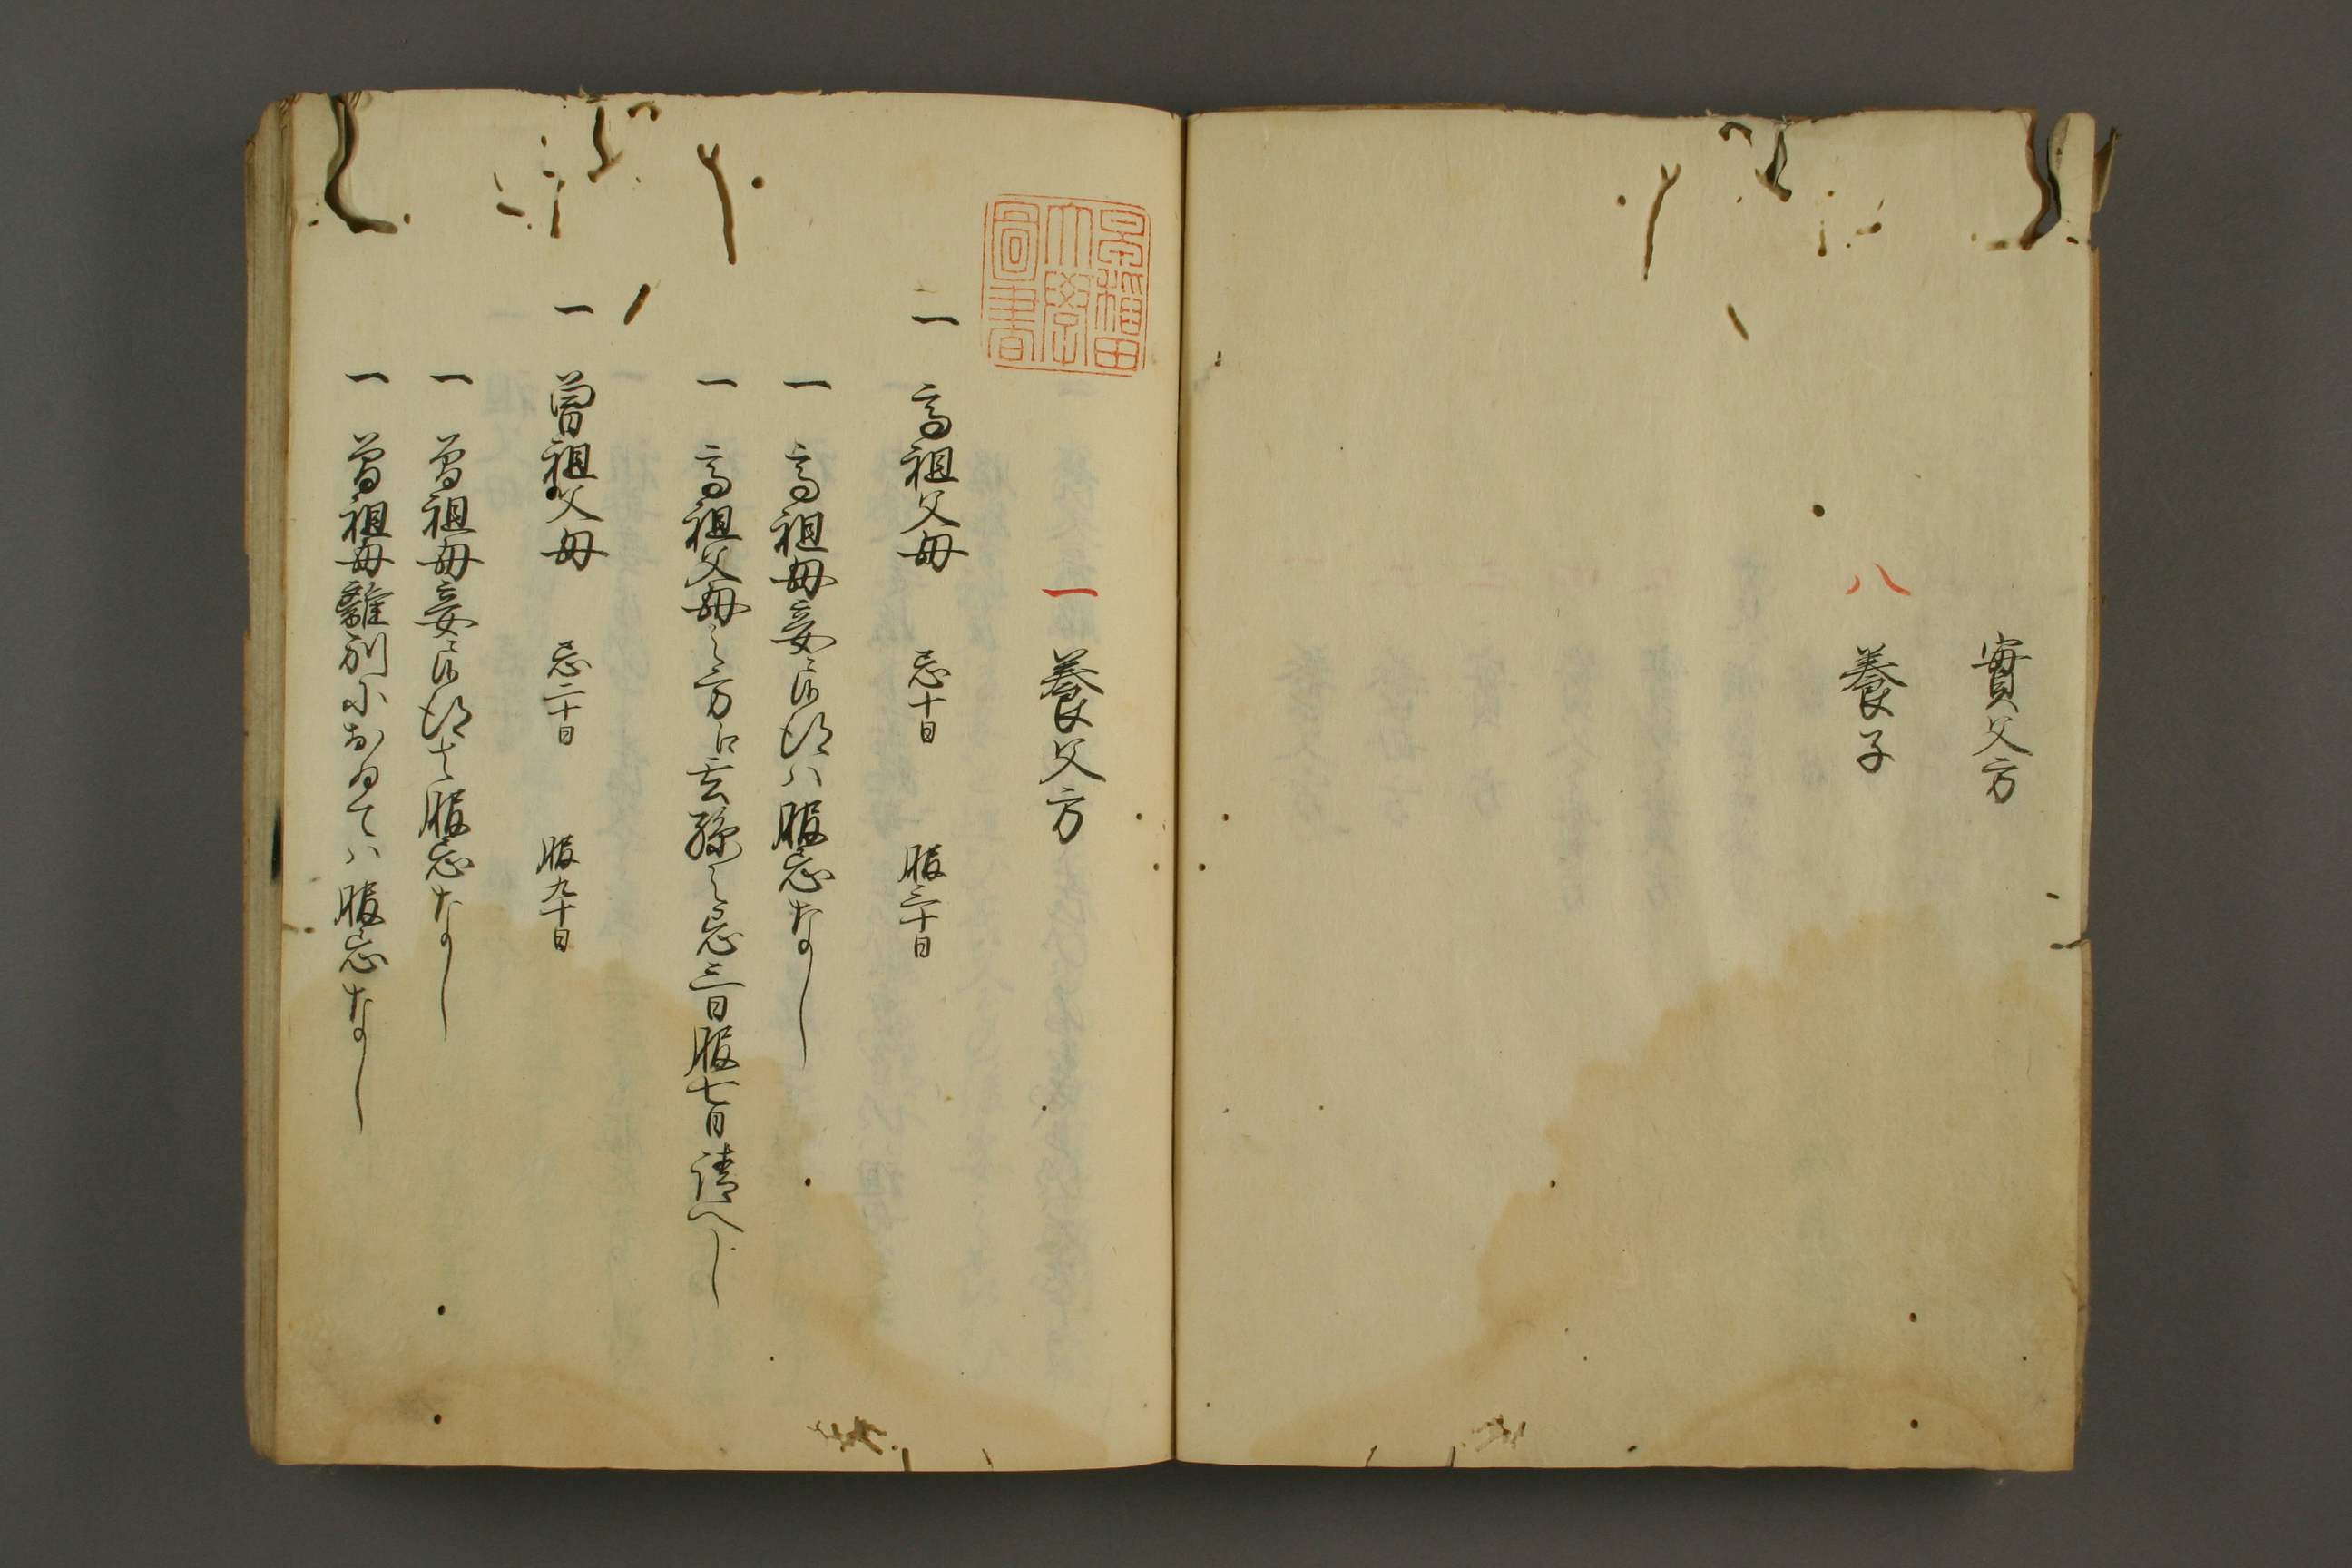 實父方
八 養子
早稲田
大學
圖書
一 養父方
一 高祖父母 忌十日 服三十日
一 高祖母妾ニ候得ハ服忌なし
一 高祖父母之方ニ玄孫之忌三日服七日請へし
一 曽祖父母 忌二十日 服九十日
一 曽祖母妾ニ候得者服忌なし
一 曽祖母離別におゐてハ服忌なし